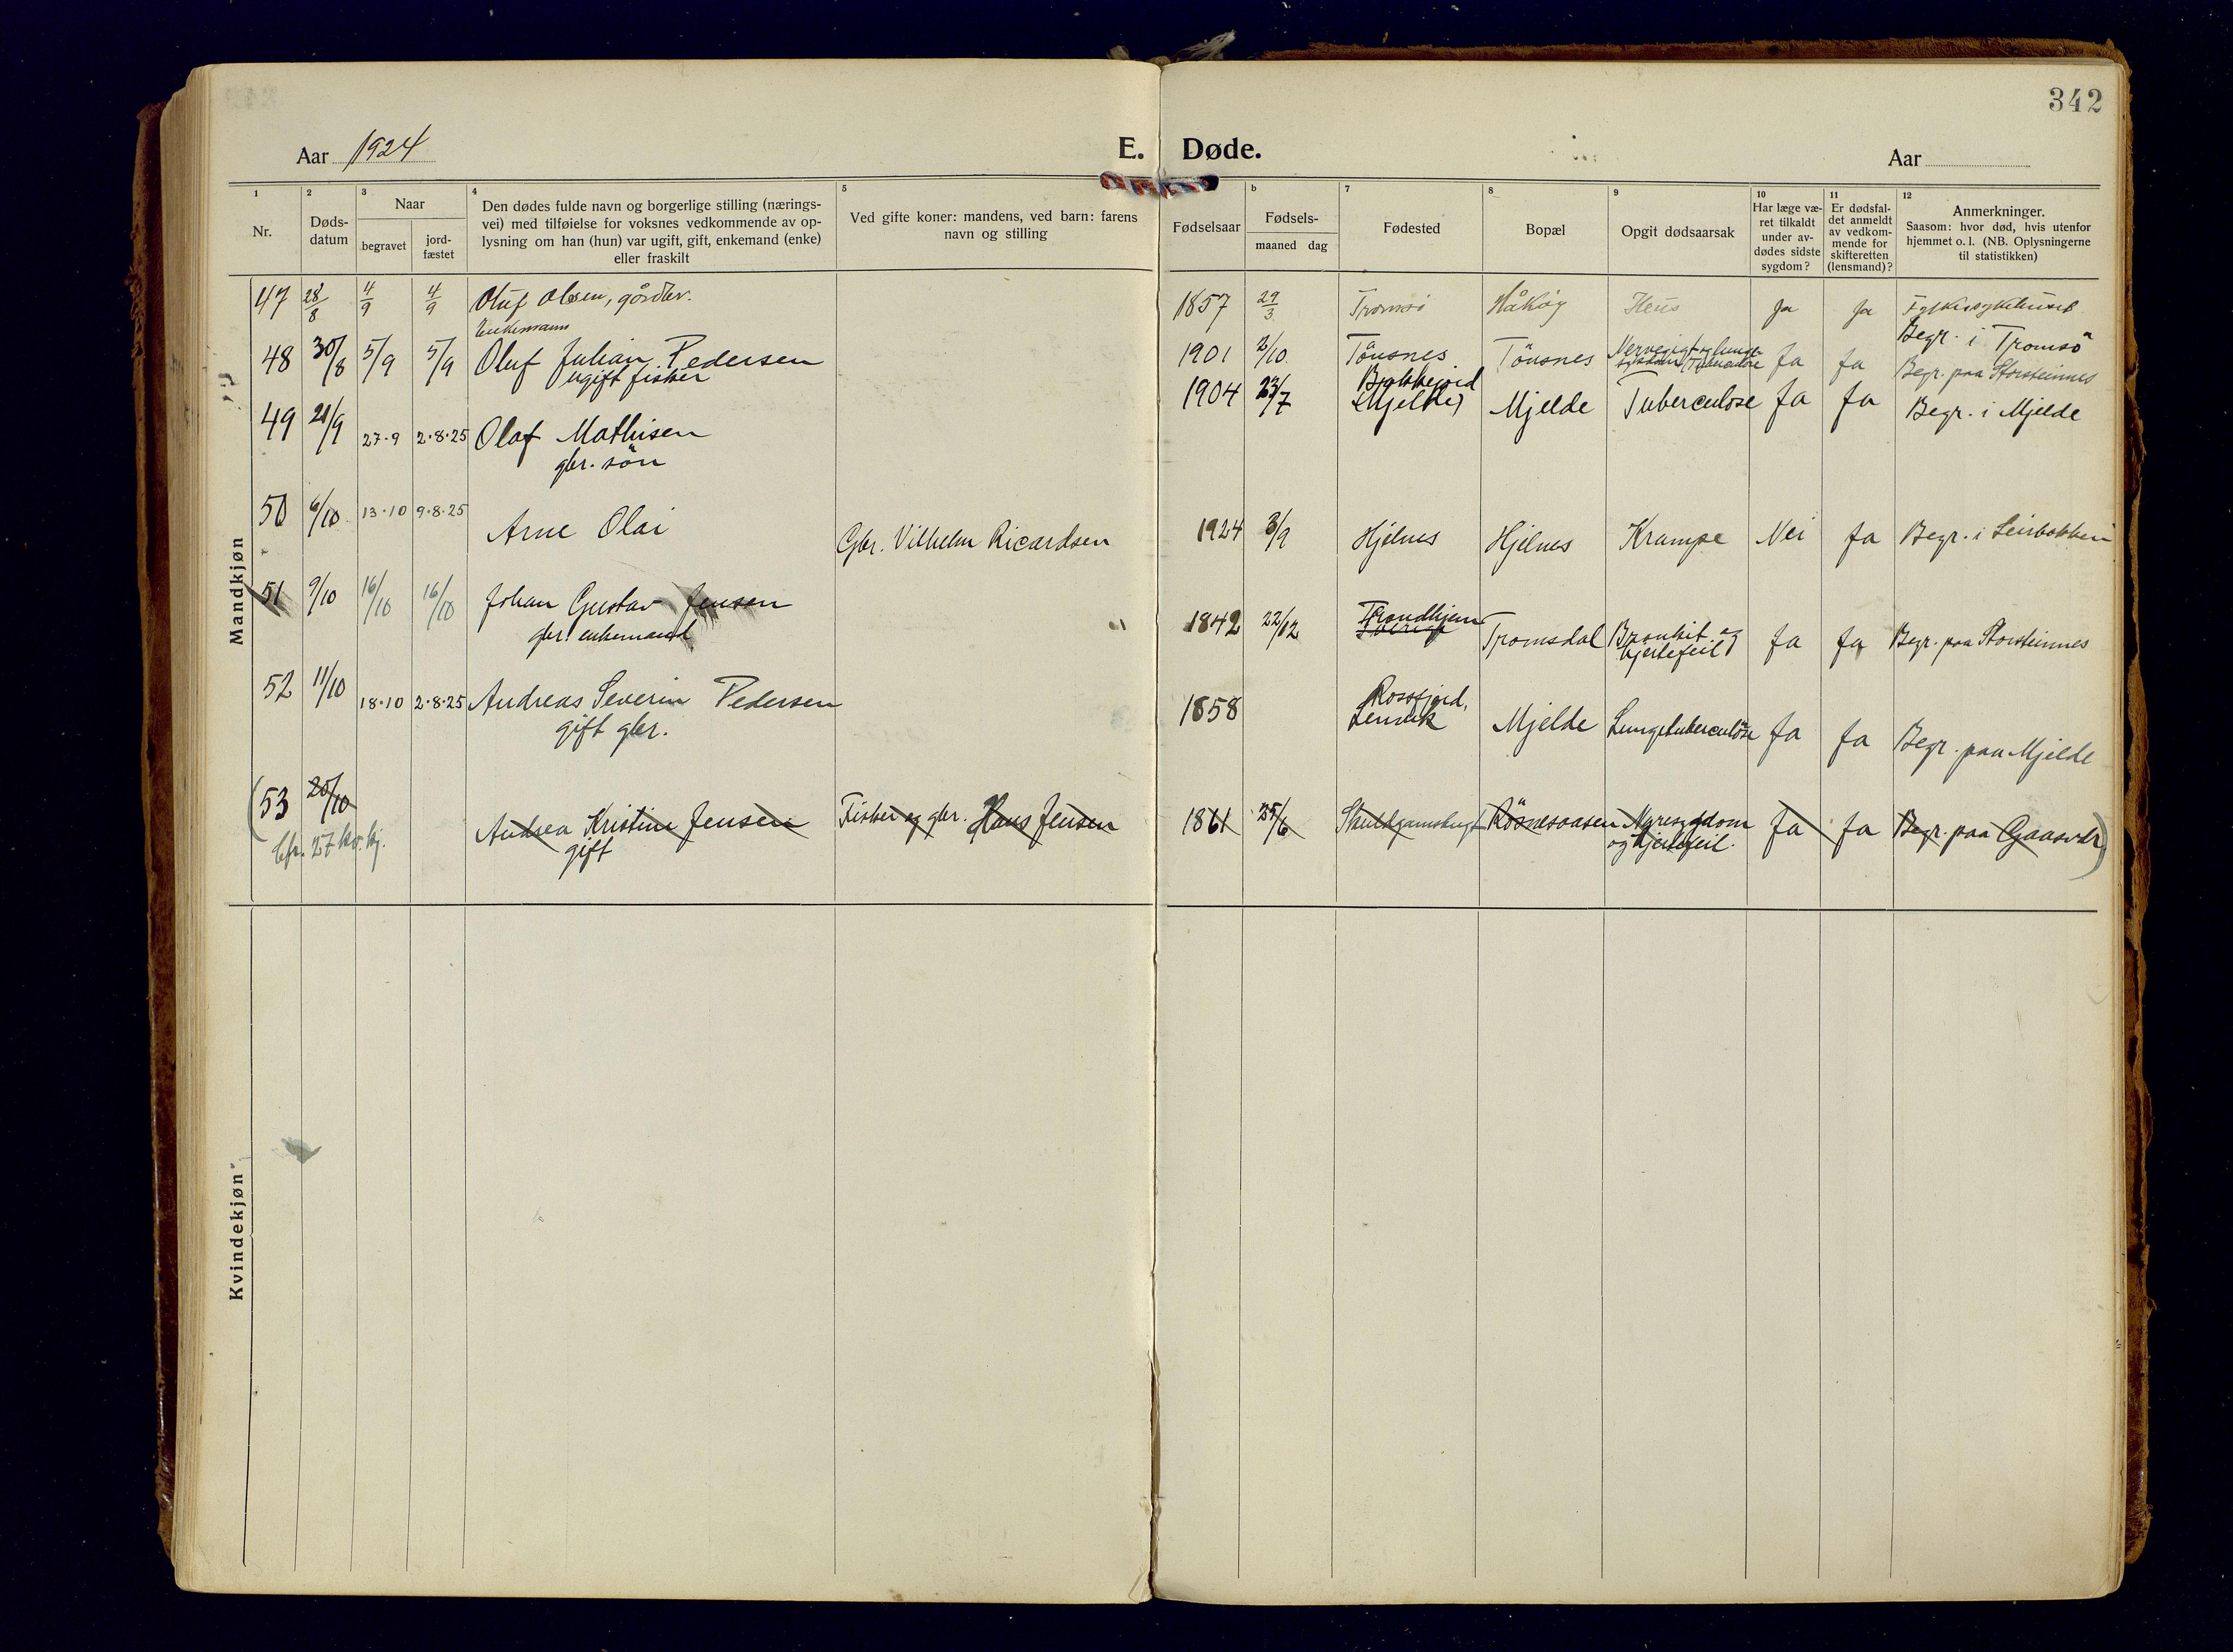 342
Aar 1924
E. Døde.
Aar
1 2 3 4 5 b 7 8 9 10 11 12
Nr.
Døds-
datum
Naar
begravet
jord-
fæstet
Den dødes fulde navn og borgerlige stilling (nærings-
vei) med tilføielse for voksnes vedkommende av op-
lysning om han (hun) var ugift, gift, enkemand (enke)
eller fraskilt
Ved gifte koner: mandens, ved barn: farens
navn og stilling
Fødselsaar
Fødsels-
maaned dag
Fødested
Bopæl
Opgit dødsaarsak
Har læge væ-
ret tilkaldt
under av-
dødes sidste
sygdom?
Er dødsfal-
det anmeldt
av vedkom-
mende for
skifteretten
(lensmand)?
Anmerkninger.
Saasom: hvor død, hvis utenfor
hjemmet o. l. (NB. Oplysningerne
til statistikken)
Mandkjøn
47 28/8 4/9 4/9 Oluf Olsen, gårdbr. 1857 29/3 Tromsö Håköy Ileus Ja Ja Fylkessykehuset
Enkemann Begr. i Tromsö
48 30/8 5/9 5/9 Oluf Julian Pedersen 1901 2/10 Tönsnes Tönsnes Ja Ja Begr. paa Storsteinnes
ugift fisker
49 21/9 27.9 2.8.25 Olaf Mathisen 1904 23/7 (Mjelde) Mjelde Tuberculose Ja Ja Begr. i Mjelde
gbr. sön
50 6/10 13.10 9.8.25 Arne Olai Gbr. Vilhelm Ricardsen 1924 3/9 Hjelnes Hjelnes Krampe Nei Ja Begr. i Leirbakken
51 9/10 16/10 16/10 Johan Gustav Jensen 1842 22/12 Trondhjem Tromsdal Bronkit og Ja Ja Begr. paa Storsteinnes
gbr. enkemand hjertefeil
52 11/10 18.10 2.8.25 Andreas Severin Pedersen 1858 Rossfjord, Mjelde Lungetuberculöse Ja Ja Begr. paa Mjelde
gift gbr. Lenvik
(53 20/10 Andrea Kristine Jensen Fisker og gbr. Hans Jensen 1861 25/6 Skuldgamsbugt Rösnesaasen Nyresygdom Ja Ja Begr. paa Gaasvær)
cfr. 27 kv. kj. gift og hjertefeil.
Kvindekjøn